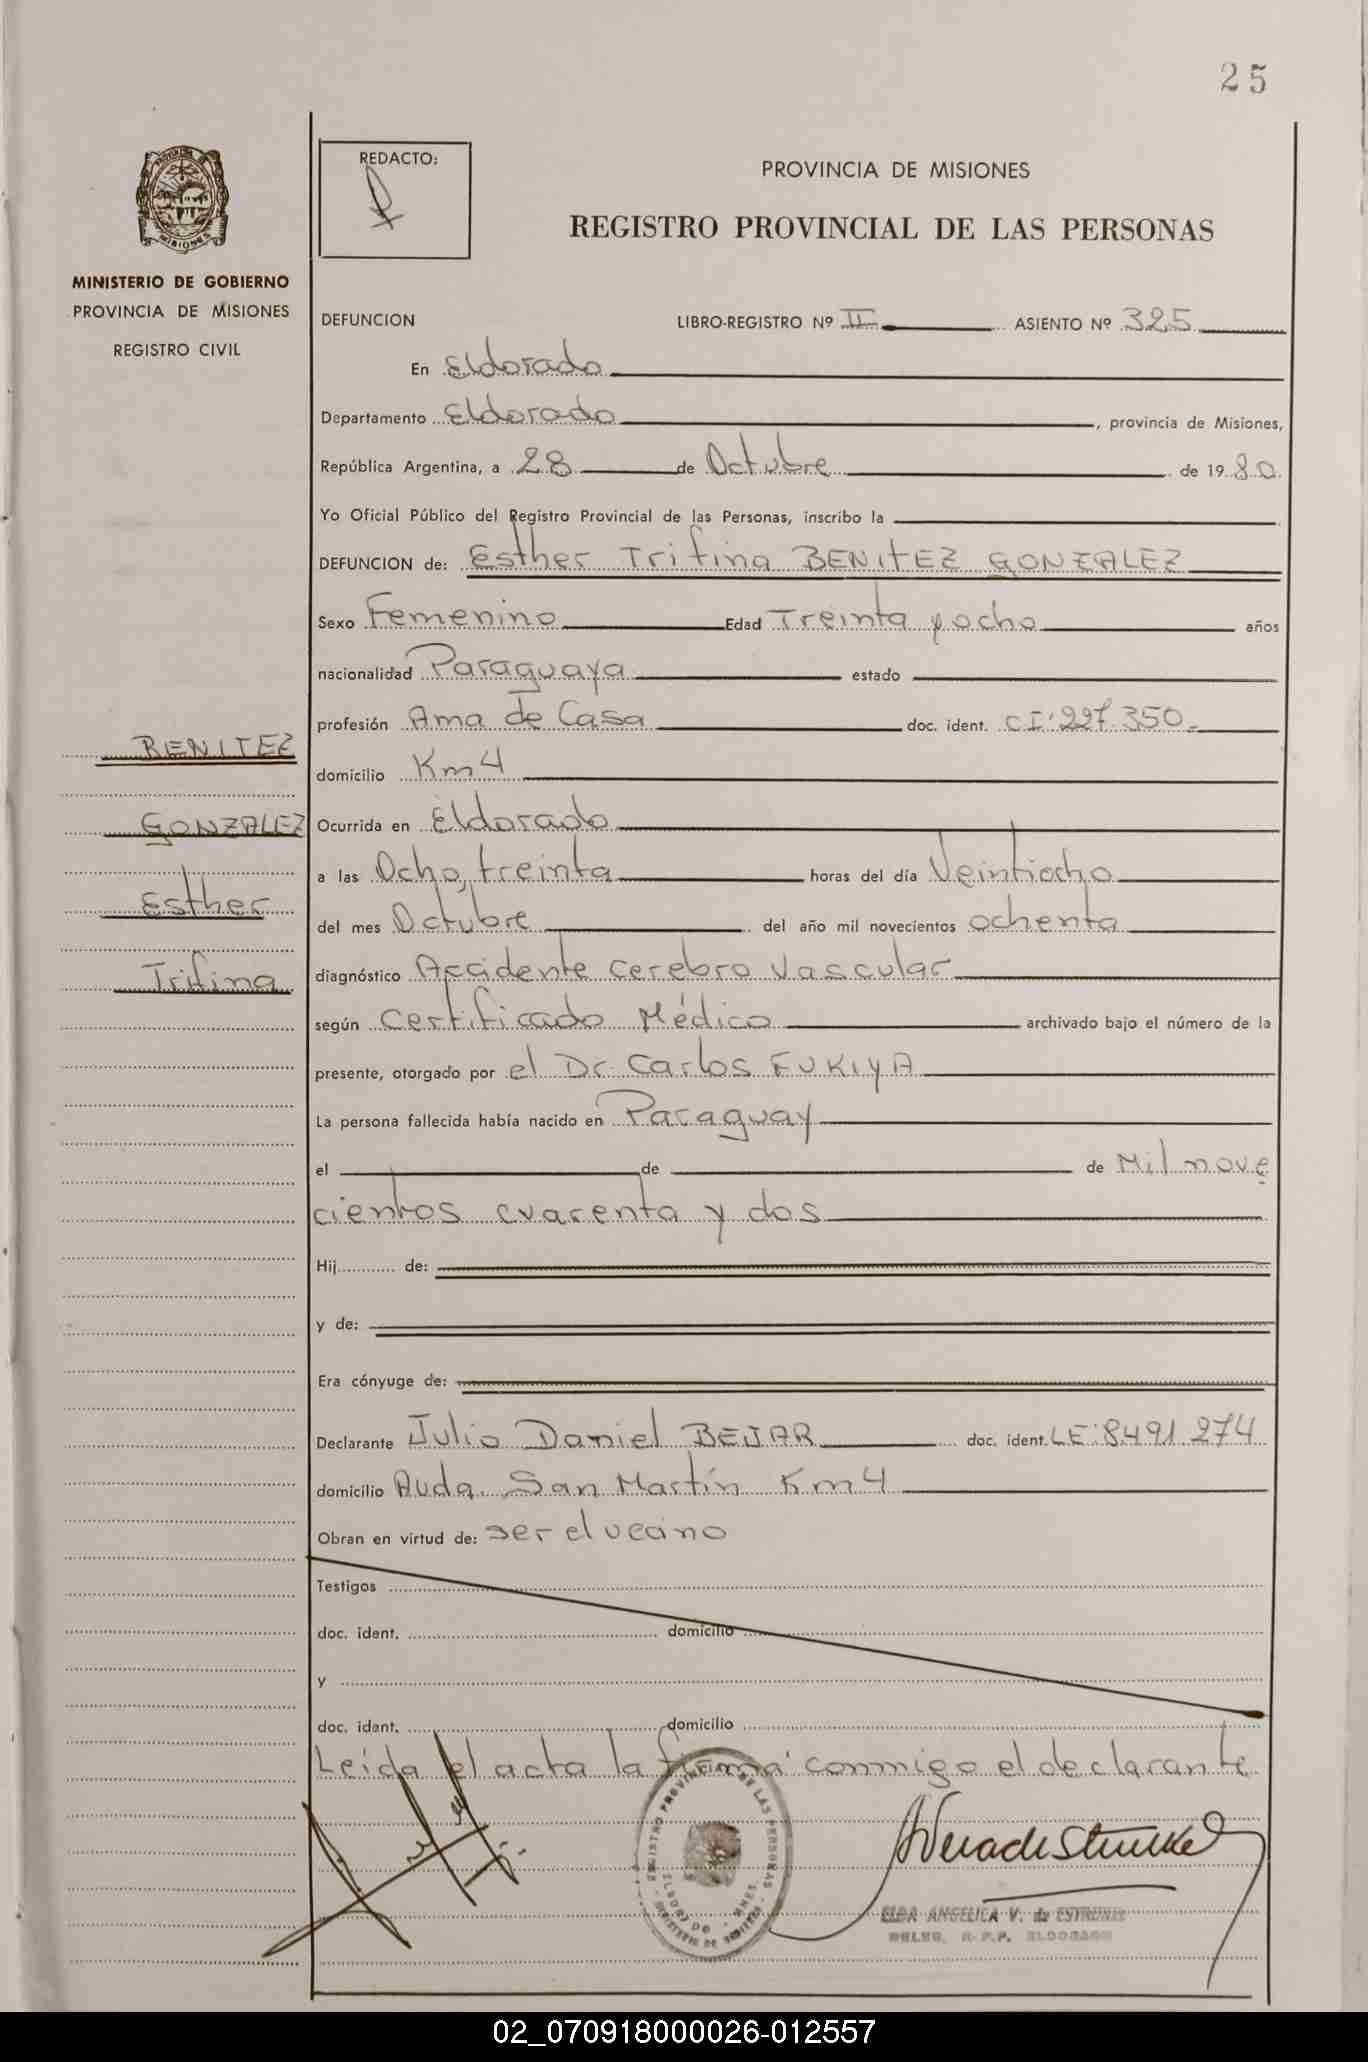 25
REDACTO:
PROVINCIA DE MISIONES
REGISTRO PROVINCIAL DE LAS PERSONAS
MISIONES
MINISTERIO DE GOBIERNO
PROVINCIA DE MISIONES
REGISTRO CIVIL
DEFUNCION LIBRO-REGISTRO Nº II ASIENTO Nº 325
En Eldorado
Departamento Eldorado, provincia de Misiones,
República Argentina, a 28 de Octubre de 19 80
Yo Oficial Público del Registro Provincial de las Personas, inscribo la
DEFUNCION de: Esther Trifina BENITEZ GONZALEZ
Sexo Femenino Edad Treinta y ocho años
nacionalidad Paraguaya estado
profesión Ama de Casa doc. ident. CI: 227.350
BENITEZ
domicilio Km 4
GONZALEZ
Ocurrida en Eldorado
a las Ocho, treinta horas del día Veintiocho
Esther
del mes Octubre del año mil novecientos ochenta
Trifina
diagnóstico Accidente cerebro Vascular
según Certificado Médico archivado bajo el número de la
presente, otorgado por el Dr. Carlos FUKIYA
La persona fallecida había nacido en Paraguay
el de de Mil nove
cientos cuarenta y dos
Hij de:
y de:
Era cónyuge de:
Declarante Julio Daniel BEJAR doc. ident. LE: 8491.274
domicilio Avda. San Martín Km 4
Obran en virtud de: ser el vecino
Testigos
doc. ident. domicilio
y
doc. ident. domicilio
Leida el acta la firma conmigo el declarante
REGISTRO PROVINCIAL DE LAS PERSONAS
ELDA ANGELICA V. de
R.P.P. ELDORADO
02_070918000026-012557